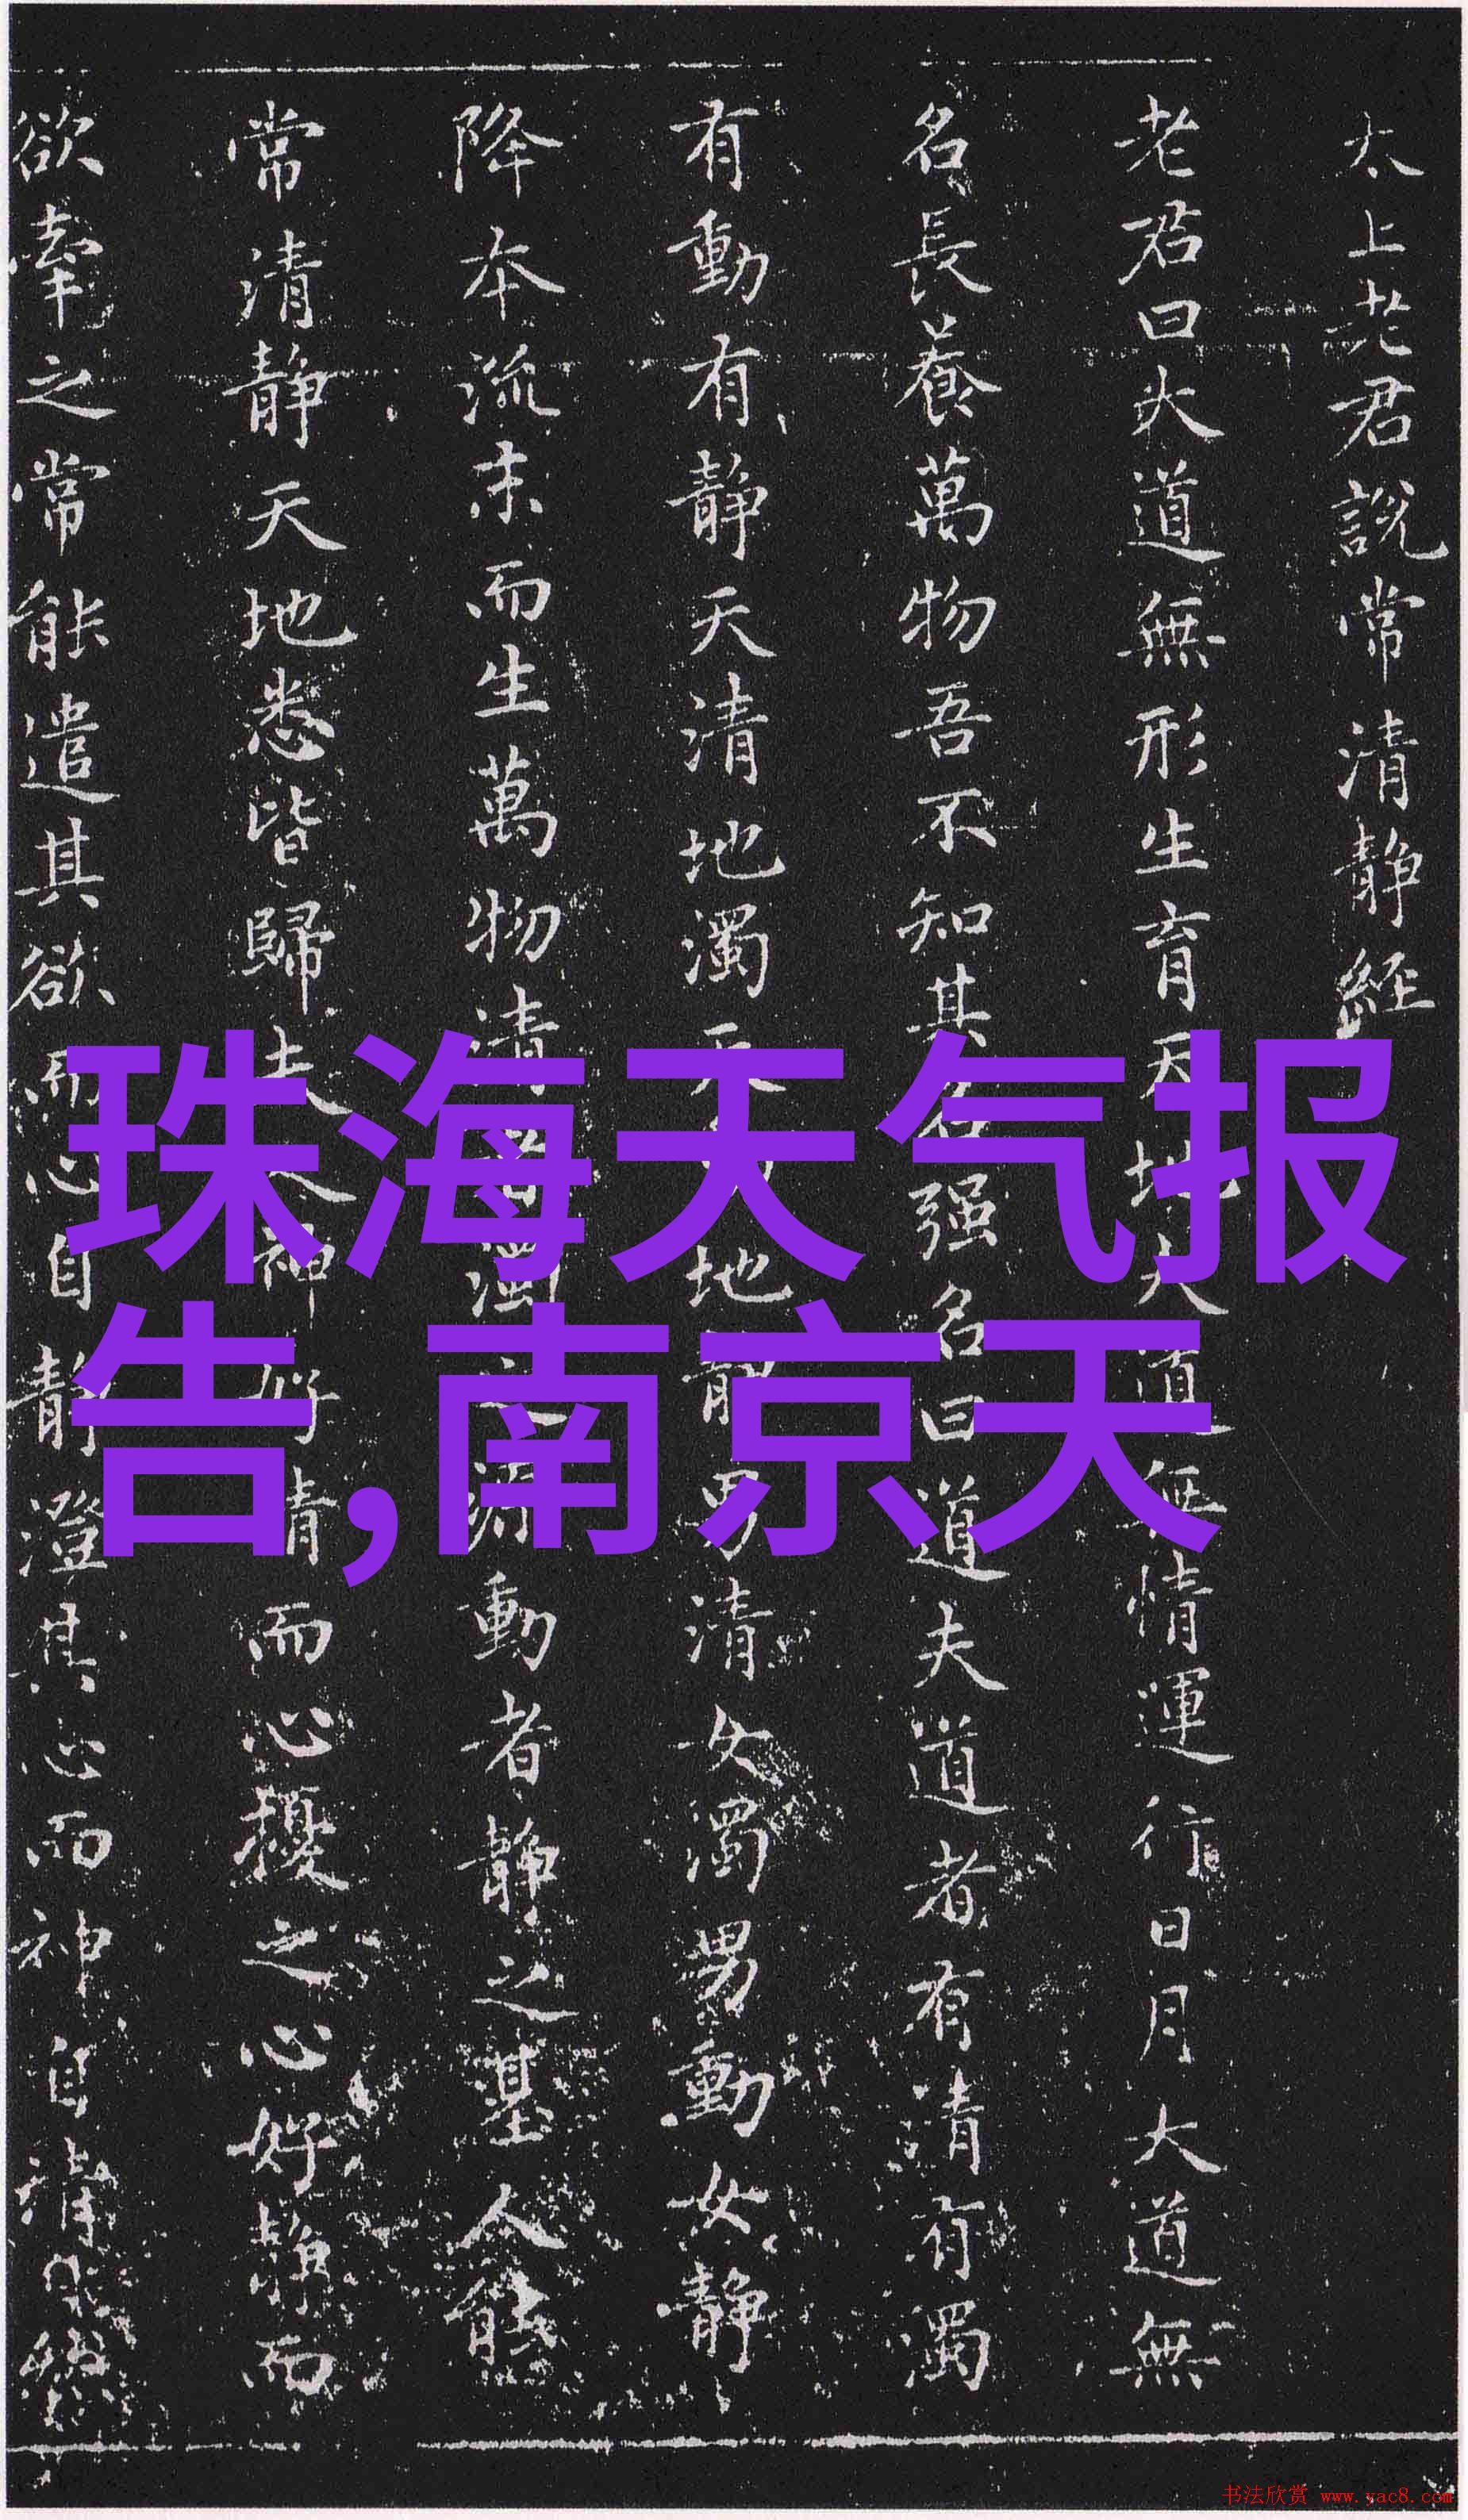 太上老君說常清静經
老君曰大道無形生育天地大道無情運行日月大道無
名長養萬物吾不知其名强名曰道夫道者有清有濁
有動有静天清地濁天動地静男清女濁男動女静
降本流末而生萬物清者濁之源動者静之基人能
常清静天地悉皆歸夫人神好清而心擾之心好静而
欲牽之常能遣其欲而心自静澄其心而神自清
珠海天气报
告,南京天
书法欣赏 www.yac8.com